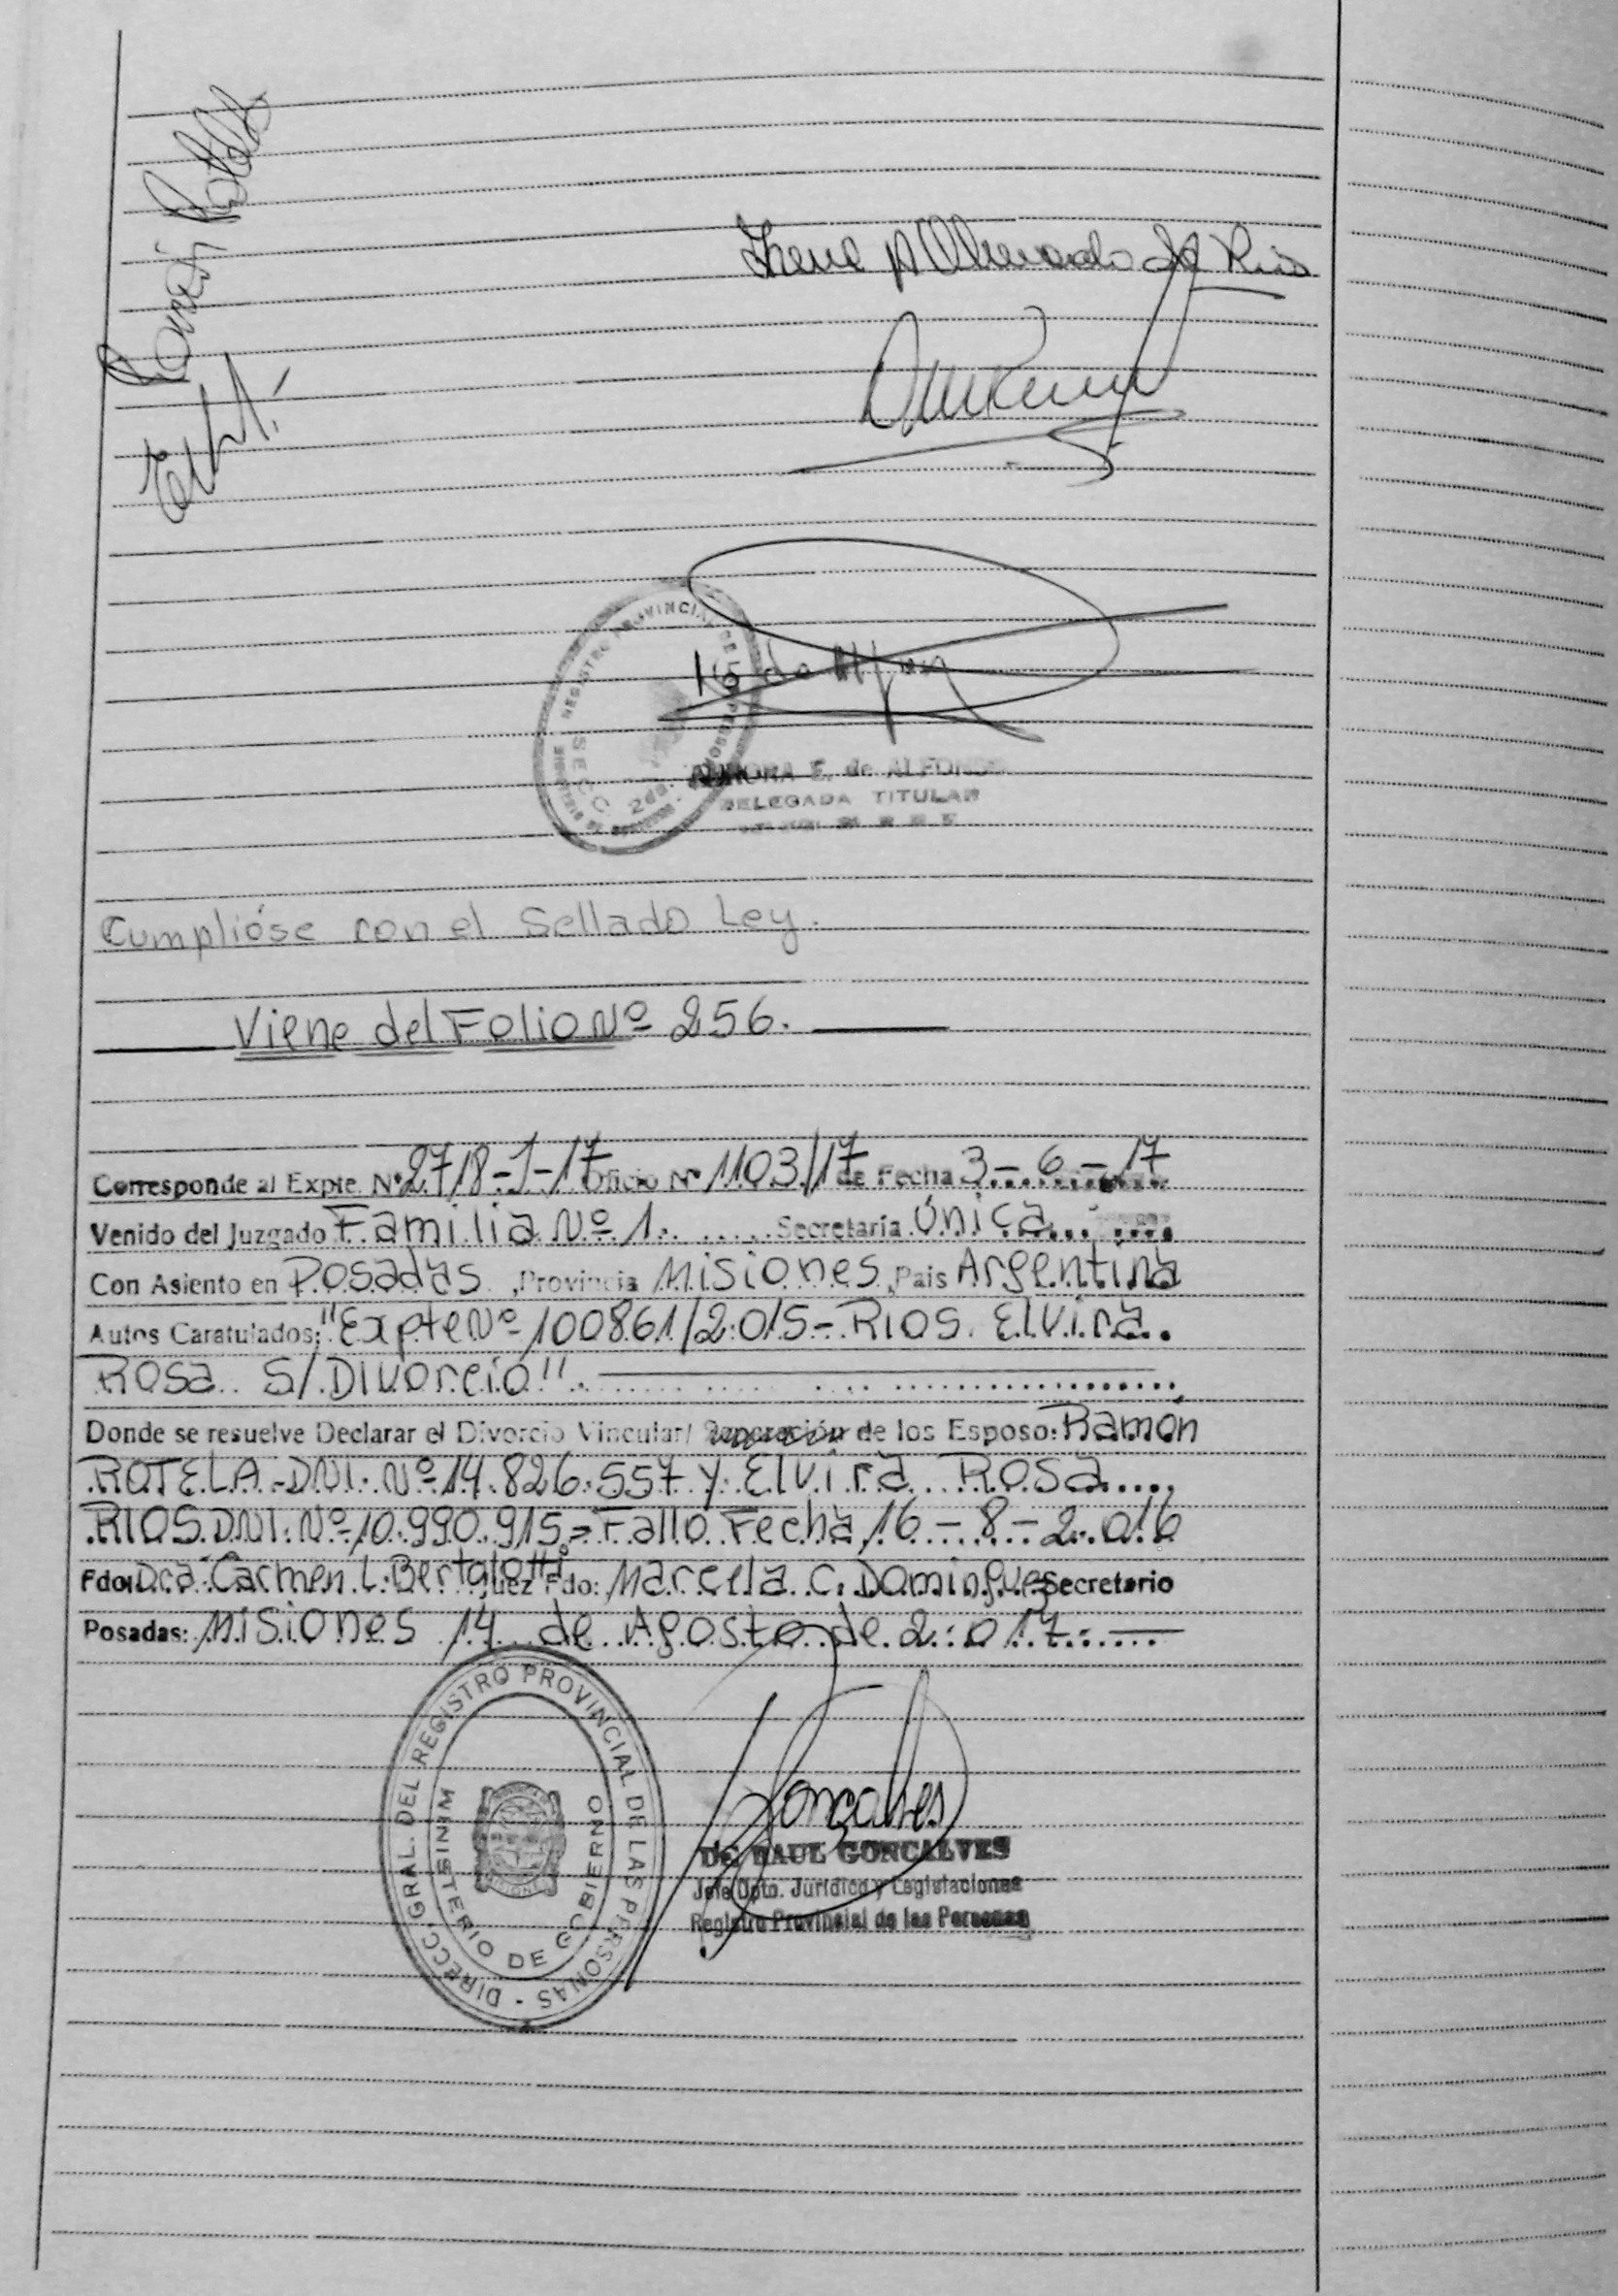 Ramón Rotela
Irene A Alvarado de Rios
REGISTRO PROVINCIAL DE
AURORA E. de ALFONSO
DELEGADA TITULAR
Cumplióse con el Sellado Ley.
Viene del Folio Nº 256.
Corresponde al Expte. Nº 2718-J-17 Oficio Nº 1103/17 de Fecha 3-6-17
Venido del Juzgado Familia Nº 1. Secretaría Única
Con Asiento en Posadas, Provincia Misiones, Pais Argentina
Autos Caratulados: "Expte Nº 100861/2.015-RIOS. Elvira.
Rosa S/Divorcio".
Donde se resuelve Declarar el Divorcio Vincular/ Separación de los Esposo: Ramón
ROTELA-DNI. Nº 14.826.557 y Elvira Rosa
RIOS.DNI. Nº 10.990.915.= Fallo Fecha 16-8-2.016
Fdo: Dra. Carmen L. Bertolotti. Juez Fdo: Marcela C. Dominguez Secretario
Posadas: Misiones 14 de Agosto de 2.017.
DIRECC. GRAL. DEL REGISTRO PROVINCIAL DE LAS PERSONAS -
MINISTERIO DE GOBIERNO
Goncalves
RAUL GONCALVES
Jefe Dpto. Jurídico y Legislaciones
Registro Provincial de las Personas